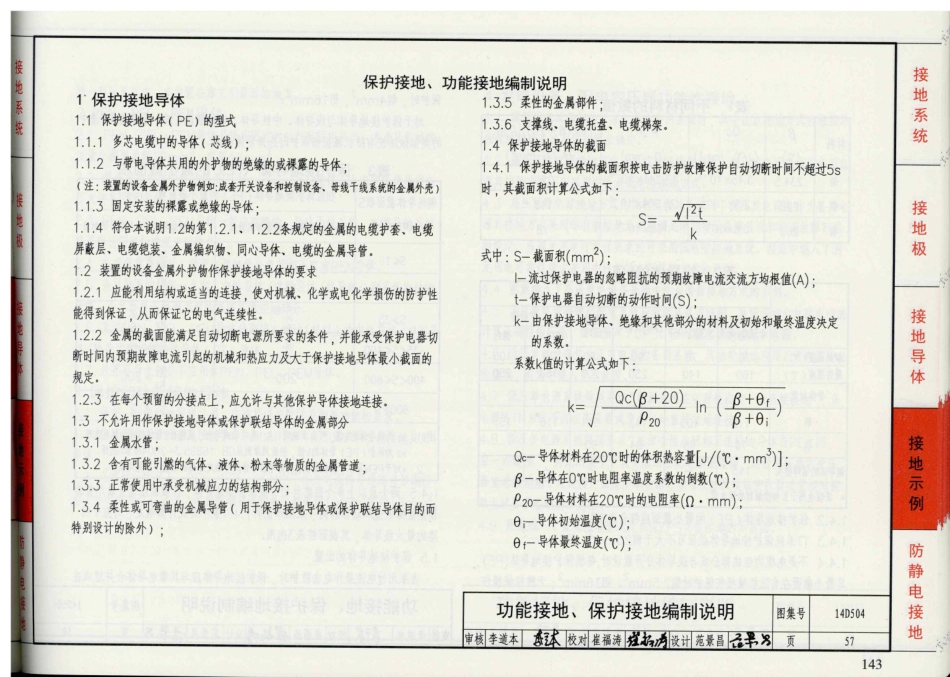 保护接地、功能接地编制说明
1 保护接地导体
1.1 保护接地导体(PE)的型式
1.1.1 多芯电缆中的导体(芯线);
1.1.2 与带电导体共用的外护物的绝缘的或裸露的导体;
(注:装置的设备金属外护物例如:成套开关设备和控制设备、母线干线系统的金属外壳)
1.1.3 固定安装的裸露或绝缘的导体;
1.1.4 符合本说明1.2的第1.2.1、1.2.2条规定的金属的电缆护套、电缆
屏蔽层、电缆铠装、金属编织物、同心导体、电缆的金属导管。
1.2 装置的设备金属外护物作保护接地导体的要求
1.2.1 应能利用结构或适当的连接,使对机械、化学或电化学损伤的防护性
能得到保证,从而保证它的电气连续性。
1.2.2 金属的截面能满足自动切断电源所要求的条件,并能承受保护电器切
断时间内预期故障电流引起的机械和热应力及大于保护接地导体最小截面的
规定。
1.2.3 在每个预留的分接点上,应允许与其他保护导体接地连接。
1.3 不允许用作保护接地导体或保护联结导体的金属部分
1.3.1 金属水管;
1.3.2 含有可能引燃的气体、液体、粉末等物质的金属管道;
1.3.3 正常使用中承受机械应力的结构部分;
1.3.4 柔性或可弯曲的金属导管(用于保护接地导体或保护联结导体目的而
特别设计的除外);
1.3.5 柔性的金属部件;
1.3.6 支撑线、电缆托盘、电缆梯架。
1.4 保护接地导体的截面
1.4.1 保护接地导体的截面积按电击防护故障保护自动切断时间不超过5s
时,其截面积计算公式如下:
S= √I²t / k
式中:S-截面积(mm²);
I-流过保护电器的忽略阻抗的预期故障电流交流方均根值(A);
t-保护电器自动切断的动作时间(S);
k-由保护接地导体、绝缘和其他部分的材料及初始和最终温度决定
的系数。
系数k值的计算公式如下:
k= √ Qc(β+20) / ρ20 ln ( β+θf / β+θi )
Qc-导体材料在20℃时的体积热容量[J/(℃·mm³)];
β-导体在0℃时电阻率温度系数的倒数(℃);
ρ20-导体材料在20℃时的电阻率(Ω·mm);
θi-导体初始温度(℃);
θf-导体最终温度(℃);
功能接地、保护接地编制说明 图集号 14D504
审核 李道本 校对 崔福涛 设计 范景昌 页 57
143
接地系统
接地极
接地导体
接地示例
防静电接地